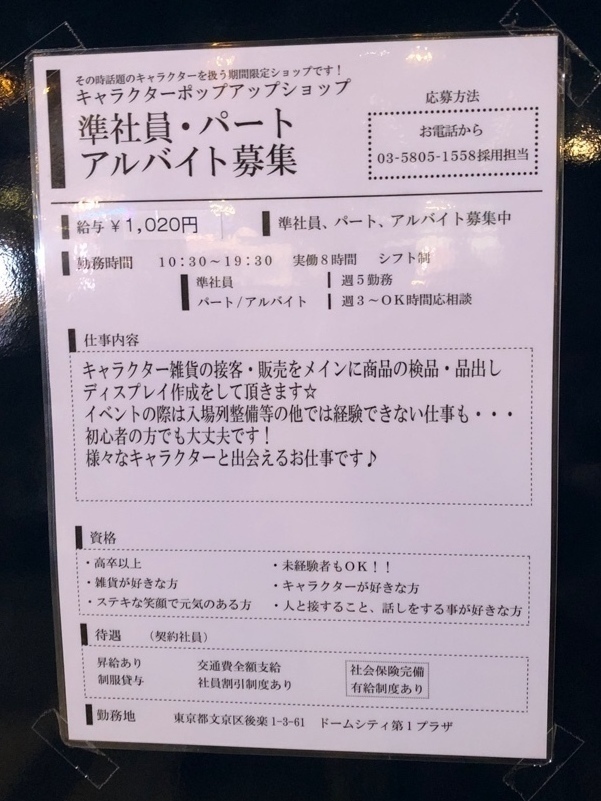 その時話題のキャラクターを扱う期間限定ショップです！
キャラクターポップアップショップ
準社員・パート
アルバイト募集
応募方法
お電話から
03-5805-1558採用担当
給与￥1,020円
準社員、パート、アルバイト募集中
勤務時間 10:30～19:30 実働8時間 シフト制
準社員 週5勤務
パート/アルバイト 週3～OK時間応相談
仕事内容
キャラクター雑貨の接客・販売をメインに商品の検品・品出し
ディスプレイ作成をして頂きます☆
イベントの際は入場列整備等の他では経験できない仕事も・・・
初心者の方でも大丈夫です！
様々なキャラクターと出会えるお仕事です♪
資格
・高卒以上 ・未経験者もOK！！
・雑貨が好きな方 ・キャラクターが好きな方
・ステキな笑顔で元気のある方 ・人と接すること、話しをする事が好きな方
待遇 （契約社員）
昇給あり 交通費全額支給 社会保険完備
制服貸与 社員割引制度あり 有給制度あり
勤務地 東京都文京区後楽1-3-61 ドームシティ第1プラザ